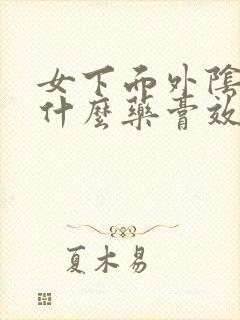 女下而外陰
什麼藥膏效
夏木易